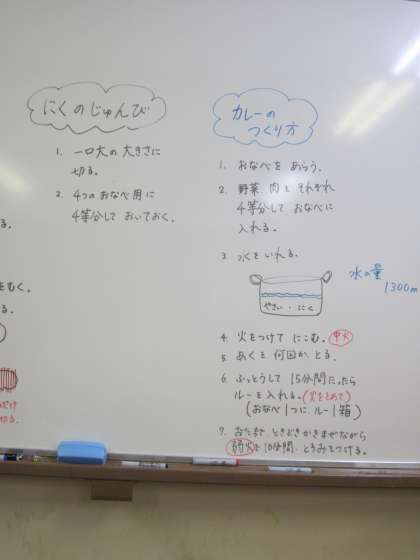 にくのじゅんび
1. 一口大の大きさに
切る。
2. 4つのおなべ用に
4等分して おいておく。
る。
をむく。
る。
だけ
切る。
カレーの
つくり方
1. おなべを あらう。
2. 野菜、肉を それぞれ
4等分して おなべに
入れる。
3. 水をいれる。
水の量
1300m
やさい・にく
4. 火をつけて にこむ。中火
5. あくを 何回か とる。
6. ふっとうして 15分間たったら
ルーを入れる。(火をとめて)
(おなべ1つに、ルー1箱)
7. ときどきかきまぜながら
弱火で10分間、とろみをつける。